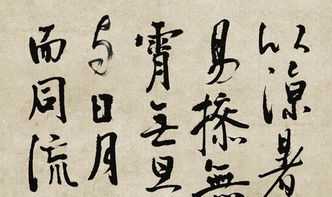 以凉暑
易操無
霄无旦
与日月
而同流